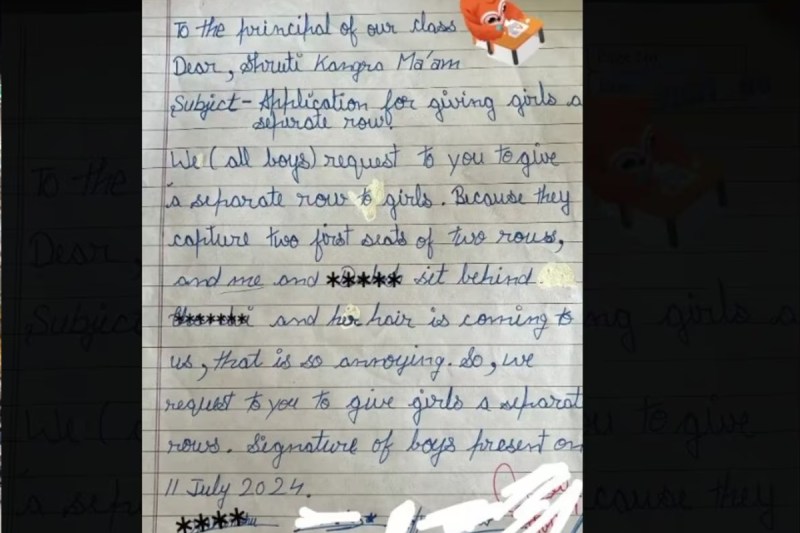 To the principal of our class
Dear, Shruti Kangra Ma'am
Subject- Application for giving girls a
seprate row.
We (all boys) request to you to give
a separate row to girls. Because they
capture two first seats of two rows,
and me and ***** sit behind.
******* and her hair is coming to
us, that is so annoying. So, we
request to you to give girls a separat
rows. Signature of boys present on
11 July 2024.
****